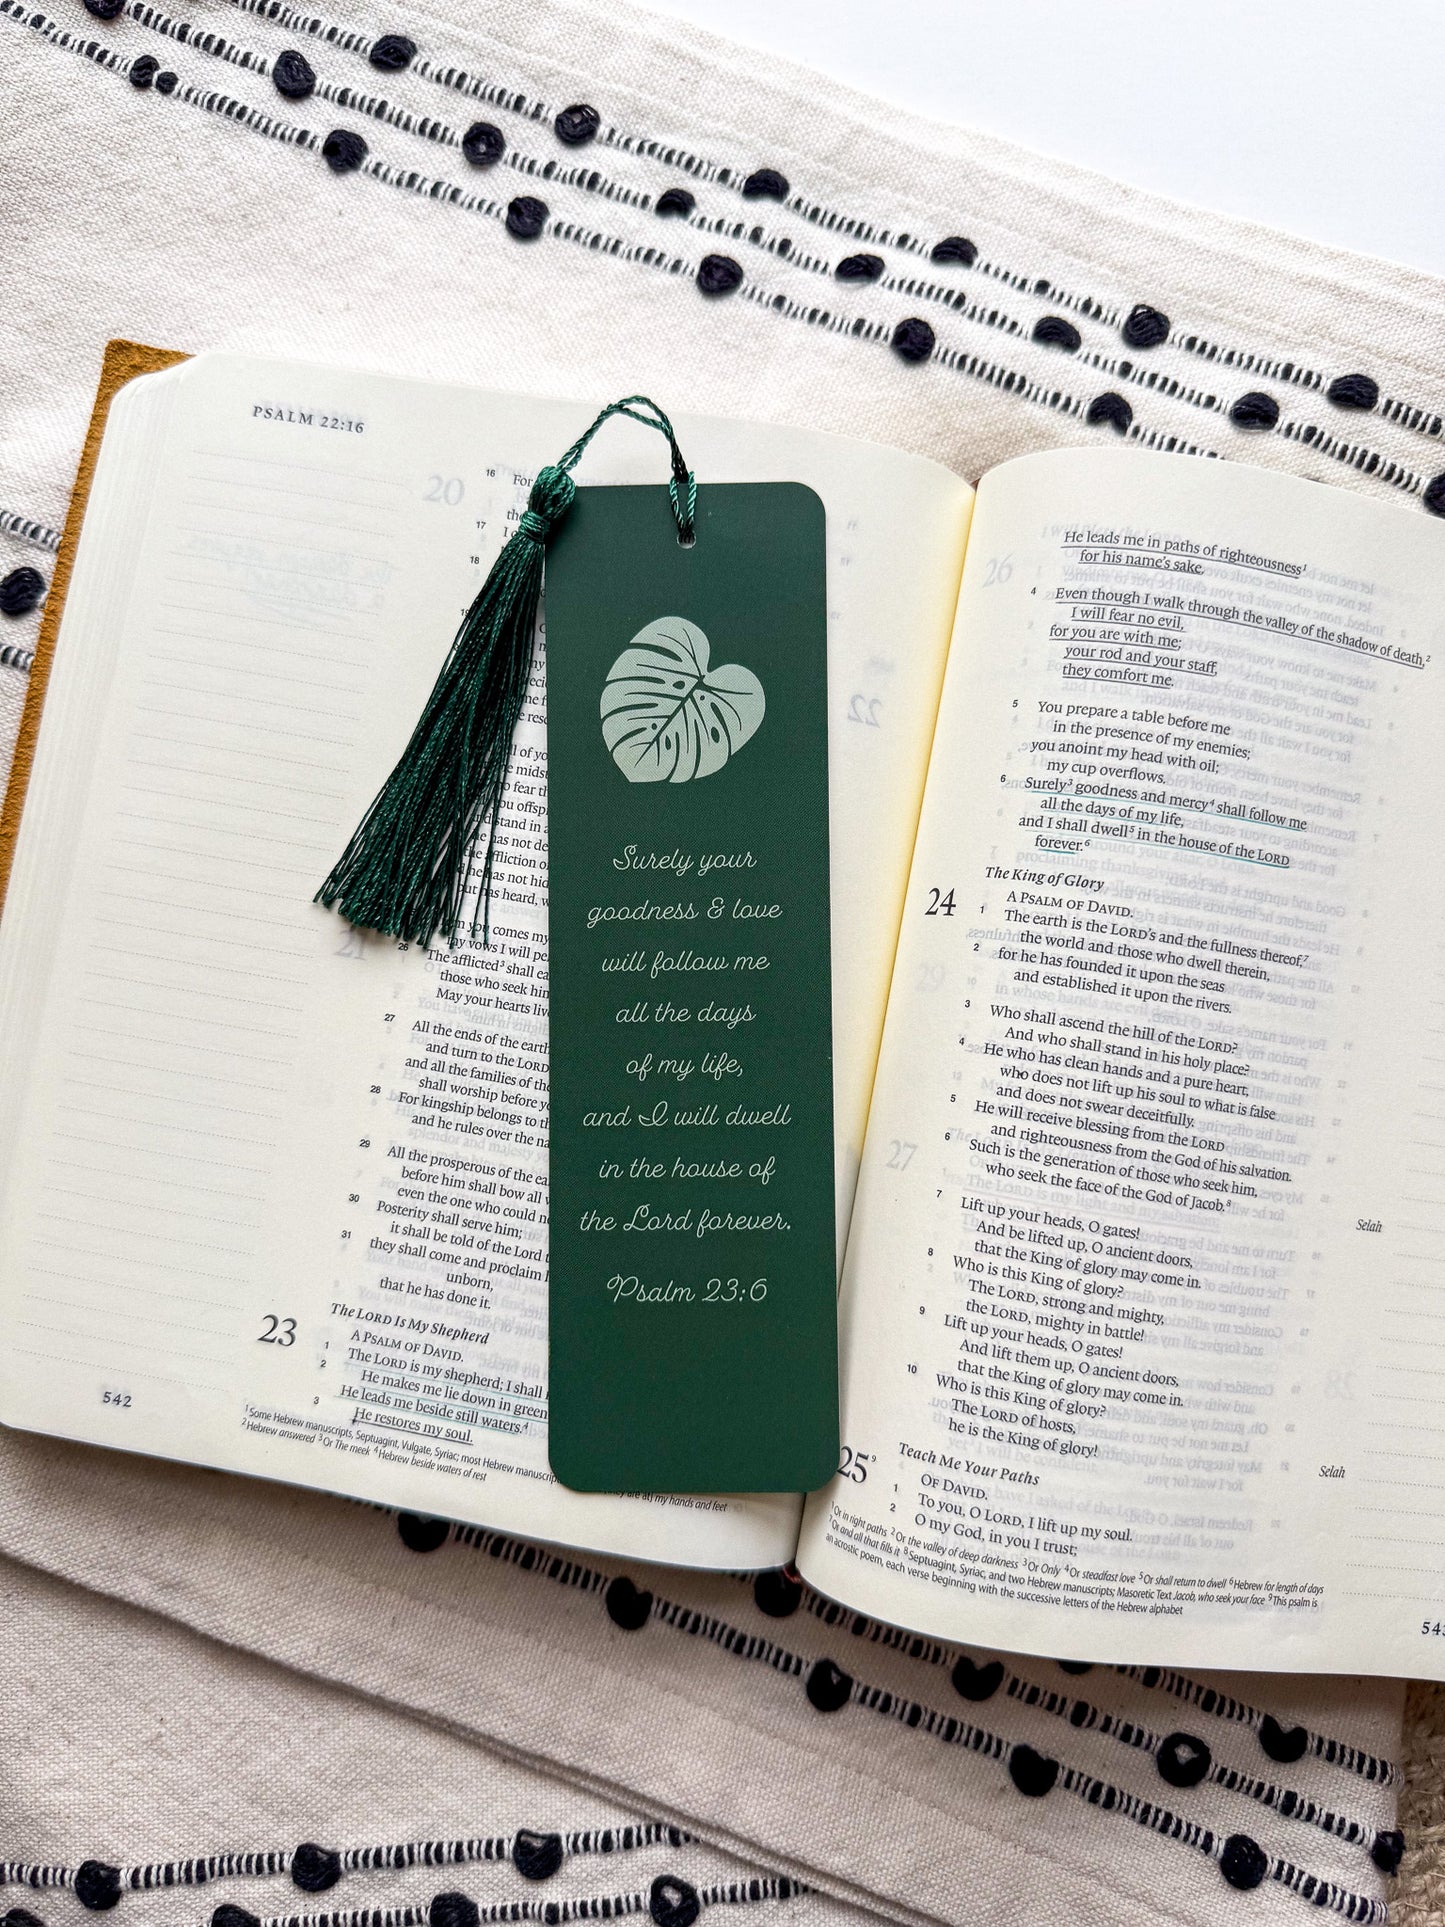 PSALM 22:16
16 For
the
17 I c
18
19
26
The afflicted³ shall ea
those who seek him
May your hearts live
27 All the ends of the earth
and turn to the LORD
and all the families of the
shall worship before y
28 For kingship belongs to th
and he rules over the na
29 All the prosperous of the ea
before him shall bow all
even the one who could n
30 Posterity shall serve him;
it shall be told of the Lord t
31 they shall come and proclaim
unborn,
that he has done it.
The LORD Is My Shepherd
23 A PSALM OF DAVID.
1 The LORD is my shepherd; I shall
2 He makes me lie down in green
He leads me beside still waters.⁴
3 He restores my soul.
¹Some Hebrew manuscripts, Septuagint, Vulgate, Syriac; most Hebrew manuscript
(they are at) my hands and feet
²Hebrew answered ³Or The meek ⁴Hebrew beside waters of rest
542
Surely your
goodness & love
will follow me
all the days
of my life,
and I will dwell
in the house of
the Lord forever.
Psalm 23:6
He leads me in paths of righteousness¹
for his name's sake.
4 Even though I walk through the valley of the shadow of death,²
I will fear no evil,
for you are with me;
your rod and your staff,
they comfort me.
5 You prepare a table before me
in the presence of my enemies;
you anoint my head with oil;
my cup overflows.
6 Surely³ goodness and mercy⁴ shall follow me
all the days of my life,
and I shall dwell⁵ in the house of the LORD
forever.⁶
The King of Glory
24 A PSALM OF DAVID.
1 The earth is the LORD's and the fullness thereof,⁷
the world and those who dwell therein,
2 for he has founded it upon the seas
and established it upon the rivers.
3 Who shall ascend the hill of the LORD?
And who shall stand in his holy place?
4 He who has clean hands and a pure heart,
who does not lift up his soul to what is false
and does not swear deceitfully.
5 He will receive blessing from the LORD
and righteousness from the God of his salvation.
6 Such is the generation of those who seek him,
who seek the face of the God of Jacob.⁸ Selah
7 Lift up your heads, O gates!
And be lifted up, O ancient doors,
that the King of glory may come in.
8 Who is this King of glory?
The LORD, strong and mighty,
the LORD, mighty in battle!
9 Lift up your heads, O gates!
And lift them up, O ancient doors,
that the King of glory may come in.
10 Who is this King of glory?
The LORD of hosts,
he is the King of glory! Selah
Teach Me Your Paths
25⁹ OF DAVID.
1 To you, O LORD, I lift up my soul.
2 O my God, in you I trust;
¹Or in right paths ²Or the valley of deep darkness ³Or Only ⁴Or steadfast love ⁵Or shall return to dwell ⁶Hebrew for length of days
⁷Or and all that fills it ⁸Septuagint, Syriac, and two Hebrew manuscripts; Masoretic Text Jacob, who seek your face ⁹This psalm is
an acrostic poem, each verse beginning with the successive letters of the Hebrew alphabet
543